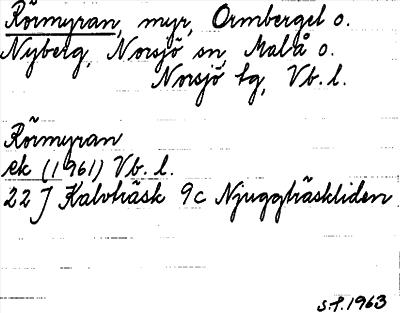 Rörmyran, myr, Ormberget o.
Nyberg, Norsjö sn, Malå o.
Norsjö tg, Vb. l.
Rörmyran
ek (1961) Vb. l.
22 J Kalvträsk 9c Njuggträskliden
S.F. 1963